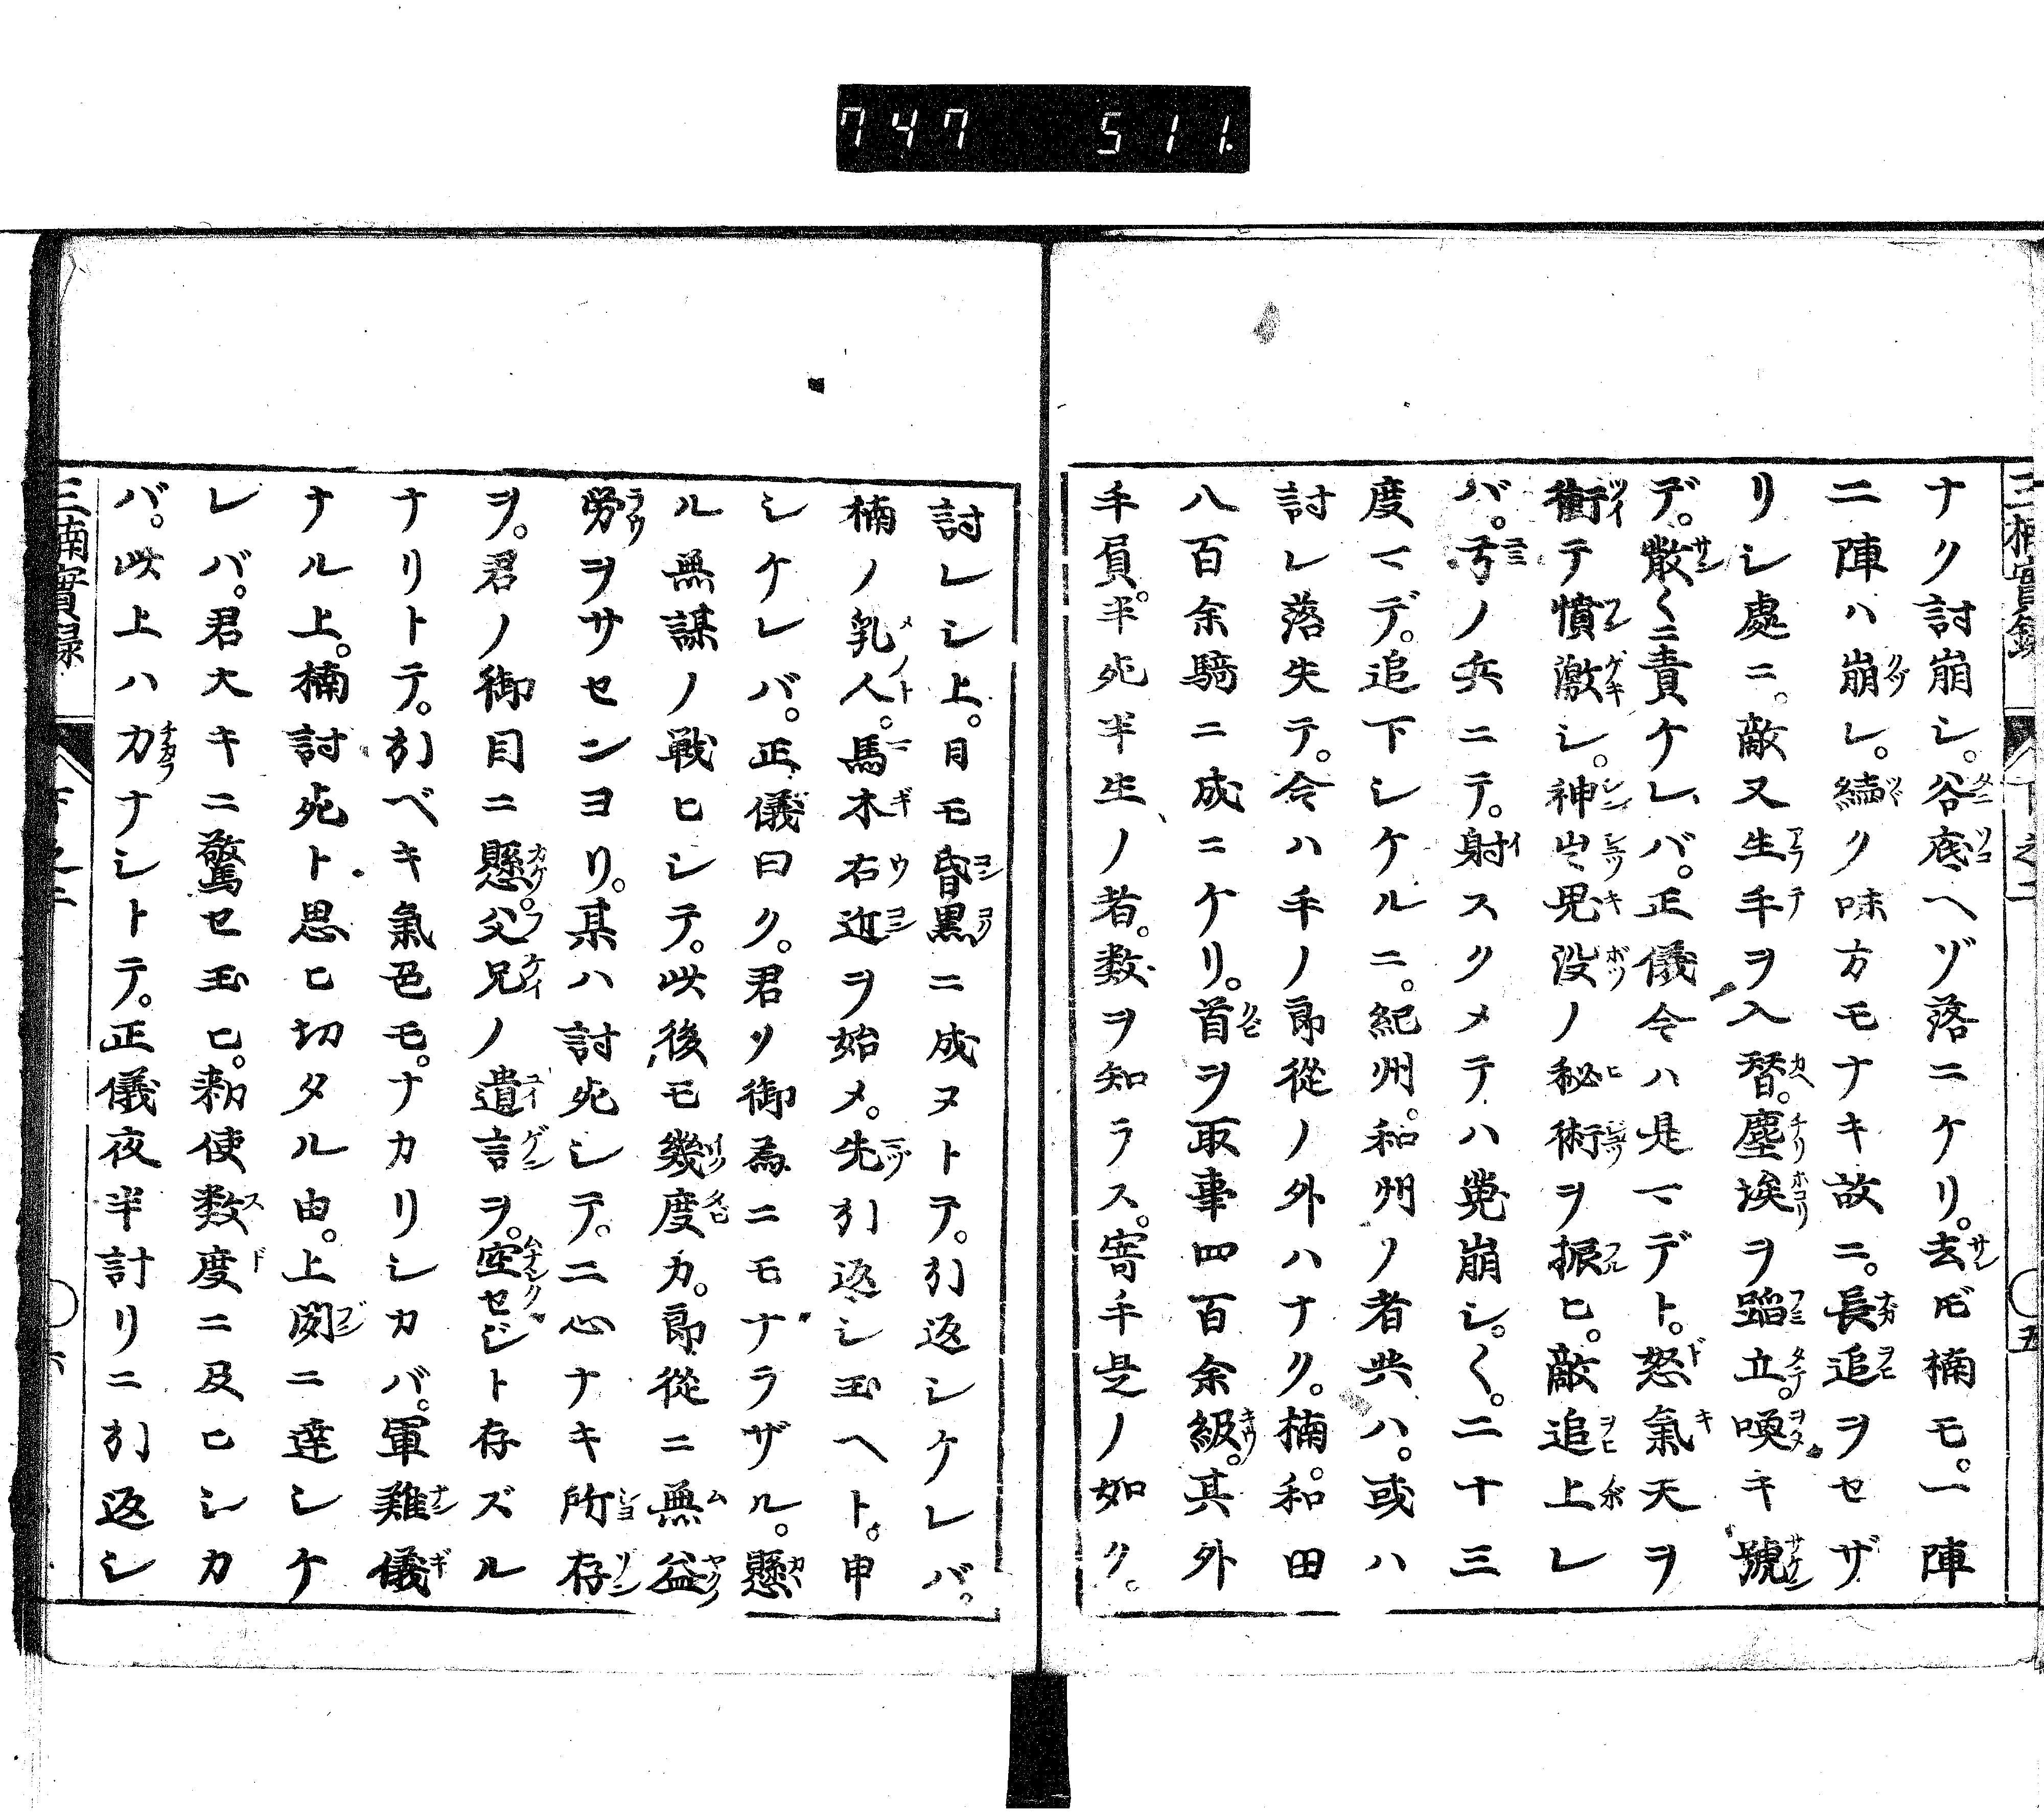 747 511.
三楠實録 下之二 五
ナク討崩シ。谷底ヘゾ落ニケリ。去𪜈楠モ。一陣
二陣ハ崩レ。續ク味方モナキ故ニ。長追ヲセザ
リシ處ニ。敵又生手ヲ入替。塵埃ヲ蹈立。喚キ號
デ。散〱ニ責ケレバ。正儀今ハ是マデト。怒氣天ヲ
衝テ憤激シ。神出鬼没ノ秘術ヲ振ヒ。敵追上レ
バ。弓ノ兵ニテ。射スクメテハ撓崩シ。〱。二十三
度マデ。追下シケルニ。紀州。和州ノ者共ハ。或ハ
討レ落失テ。今ハ手ノ郎從ノ外ハナク。楠。和田
八百余騎ニ成ニケリ。首ヲ取事四百余級。其外
手負。半死半生ノ者。数ヲ知ラス。寄手是ノ如ク。
討レシ上。日モ昏黒ニ成ヌトテ。引返シケレバ。
楠ノ乳人。馬木右近ヲ始メ。先引返シ玉ヘト。申
シケレバ。正儀曰ク。君ノ御為ニモナラザル。懸
ル無謀ノ戦ヒシテ。此後モ幾度カ。郎從ニ無益
勞ヲサセンヨリ。某ハ討死シテ。二心ナキ所存
ヲ。君ノ御目ニ懸。父兄ノ遺言ヲ。空セジト存ズル
ナリトテ。引ベキ氣色モ。ナカリシカバ。軍難儀
ナル上。楠討死ト思ヒ切タル由。上聞ニ達シケ
レバ。君大キニ驚セ玉ヒ。勅使数度ニ及ヒシカ
バ。此上ハ力ナシトテ。正儀夜半計リニ引返シ
三楠實録 下之二 六